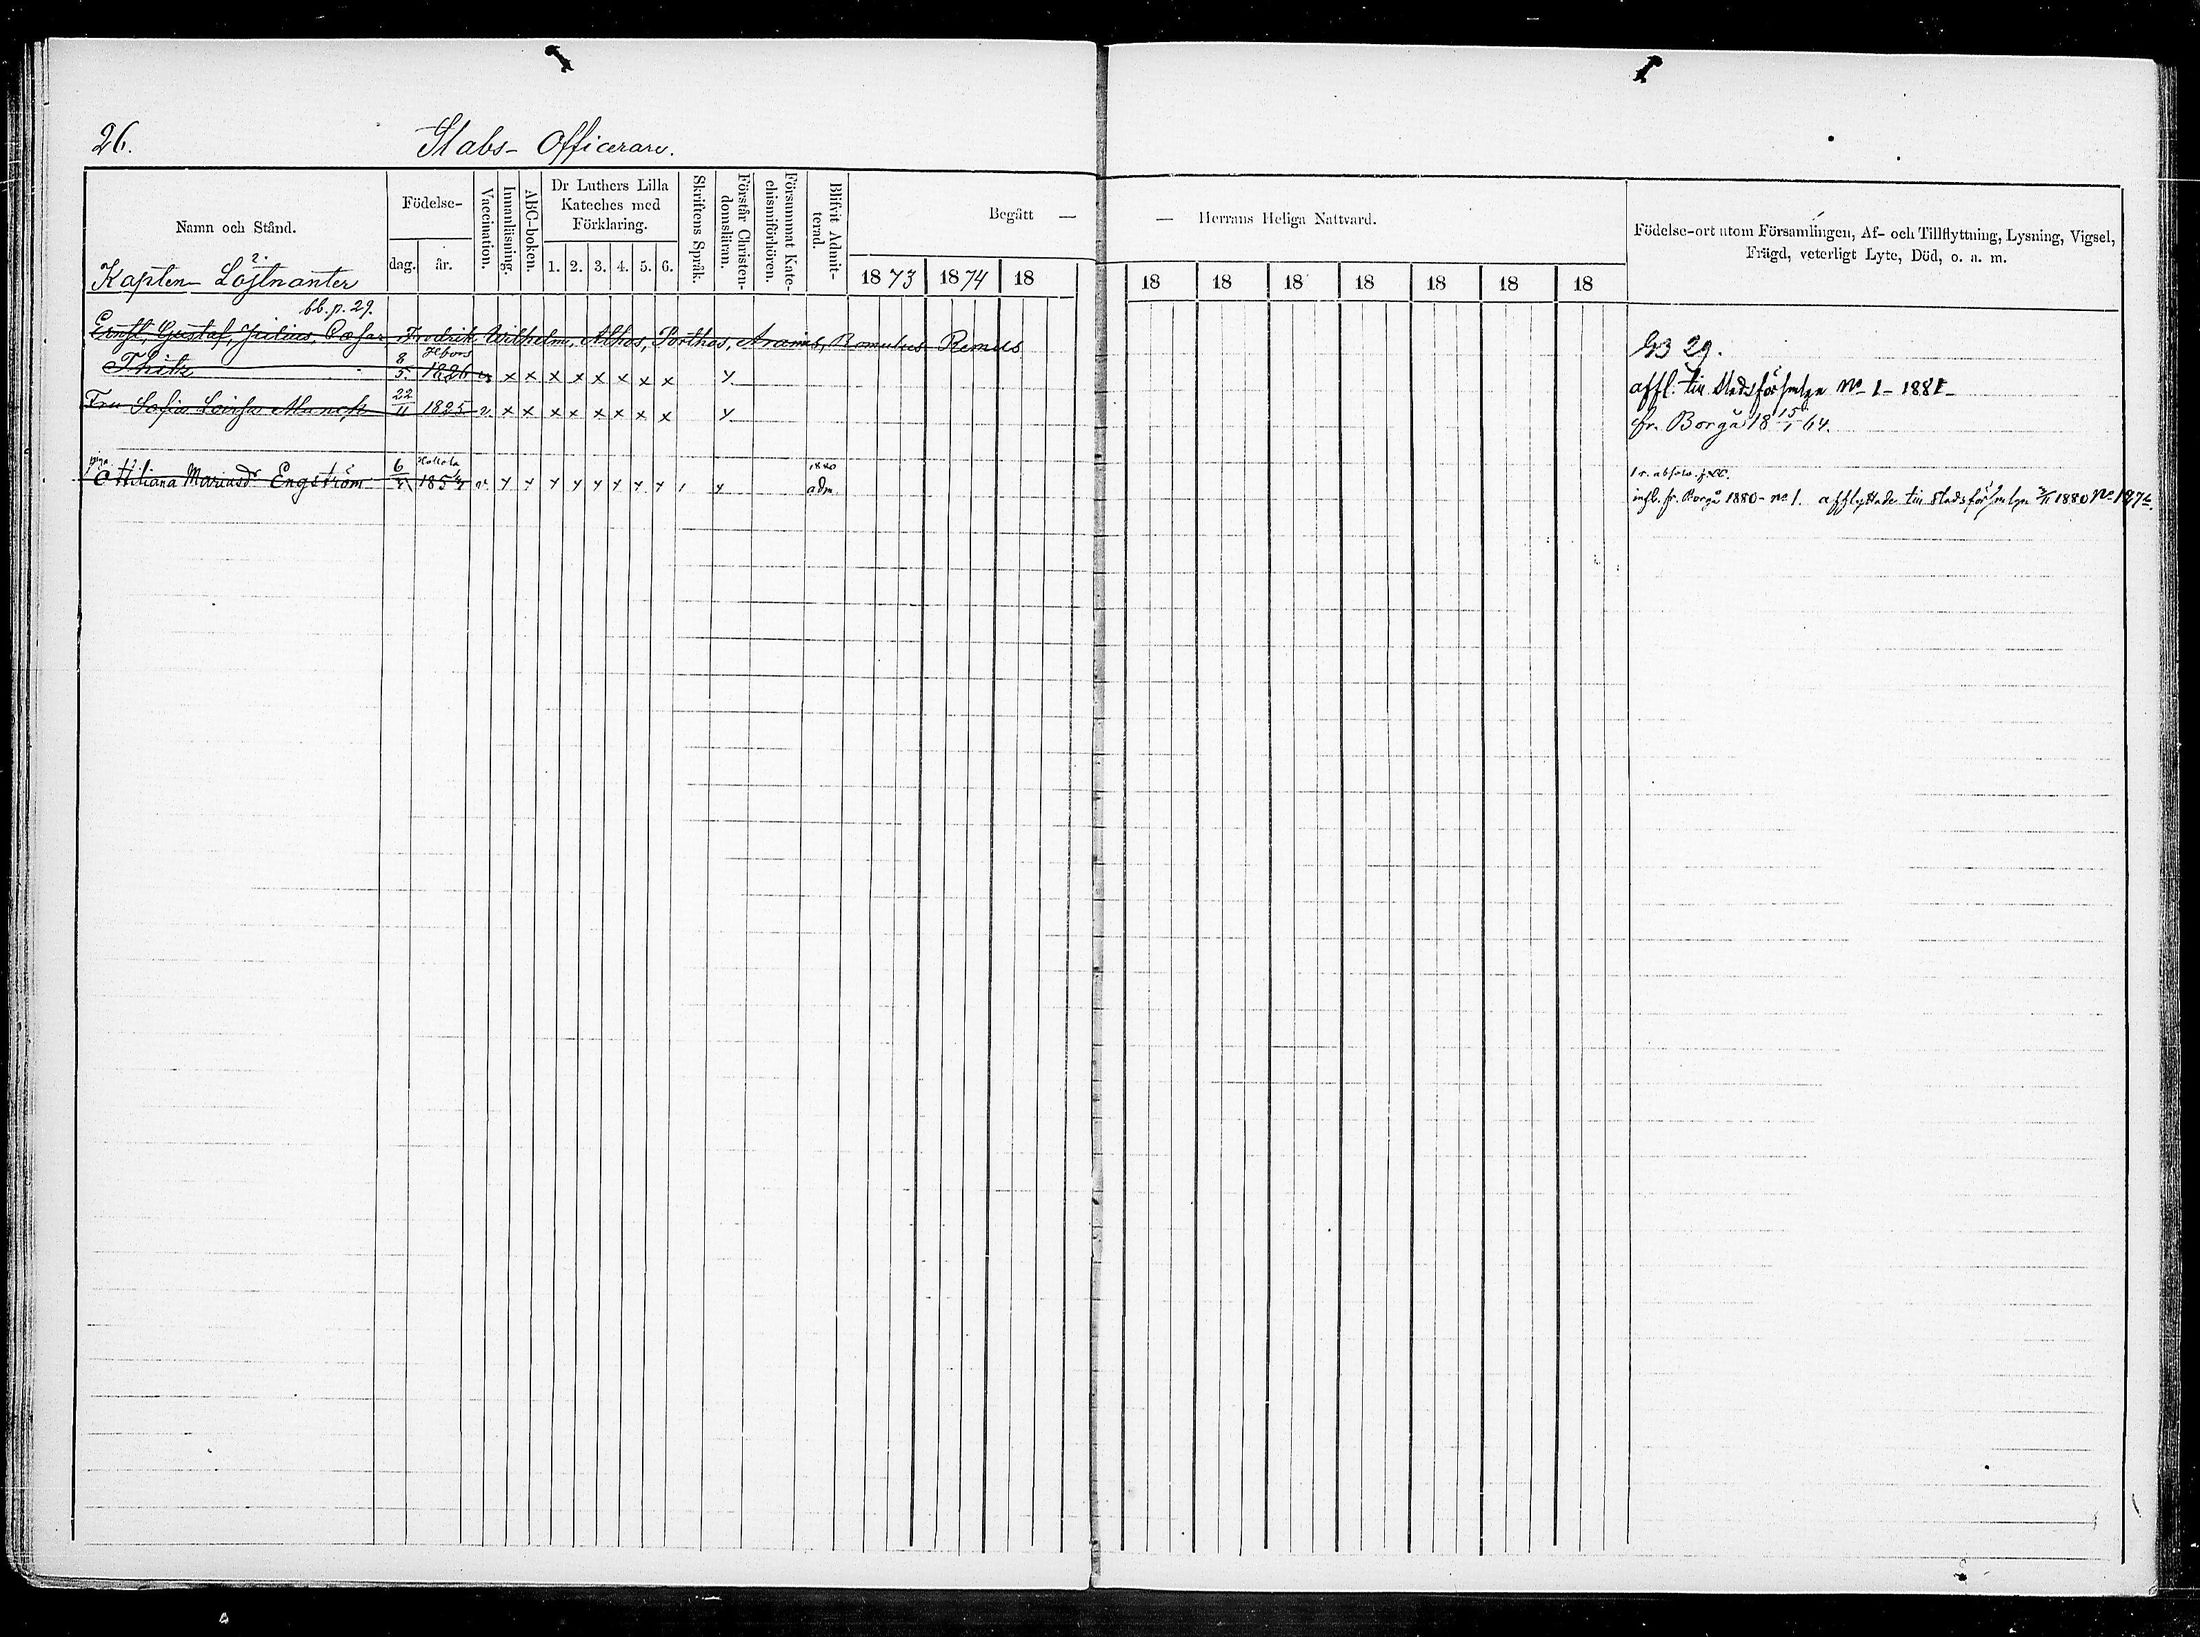 26.
Stabs-Officerare.
Namn och Stånd.
Födelse-
dag.
år.
Vaccination.
Innanläsning.
ABC-boken.
Dr Luthers Lilla
Kateches med
Förklaring.
1. 2. 3. 4. 5. 6.
Skriftens Språk.
Förstår Christen-
domsläran.
Försummat Kate-
chismiförhören.
Blifvit Admit-
terad.
Begått —
— Herrans Heliga Nattvard.
1873 1874 18
18 18 18 18 18 18 18
Födelse-ort utom Församlingen, Af- och Tillflyttning, Lysning, Vigsel,
Frägd, veterligt Lyte, Död, o. a. m.
Kapten-Löjtnanter
bb. p. 29.
Ernst, Gustaf, Julius, Cæsar Fredrik, Wilhelm, Athos, Porthos, Aramis, Romulus Remus
Thitz 8/5 H:fors 1826 v x x x x x x x x y
Fru Sofia Lovisa Munck 22/11 1825 v. x x x x x x x x y
piga Ottiliana Mariasdr Engström 6/7 Hollola 185 v. y y y y y y y y y 1880 adm.
B 29.
affl. till Stadsförsmlgn No 1-1881
fr. Borgå 18 15/1 64.
infl. fr. Borgå 1880 - no 1. afflyttade till Stadsförsmlgn 1880 No